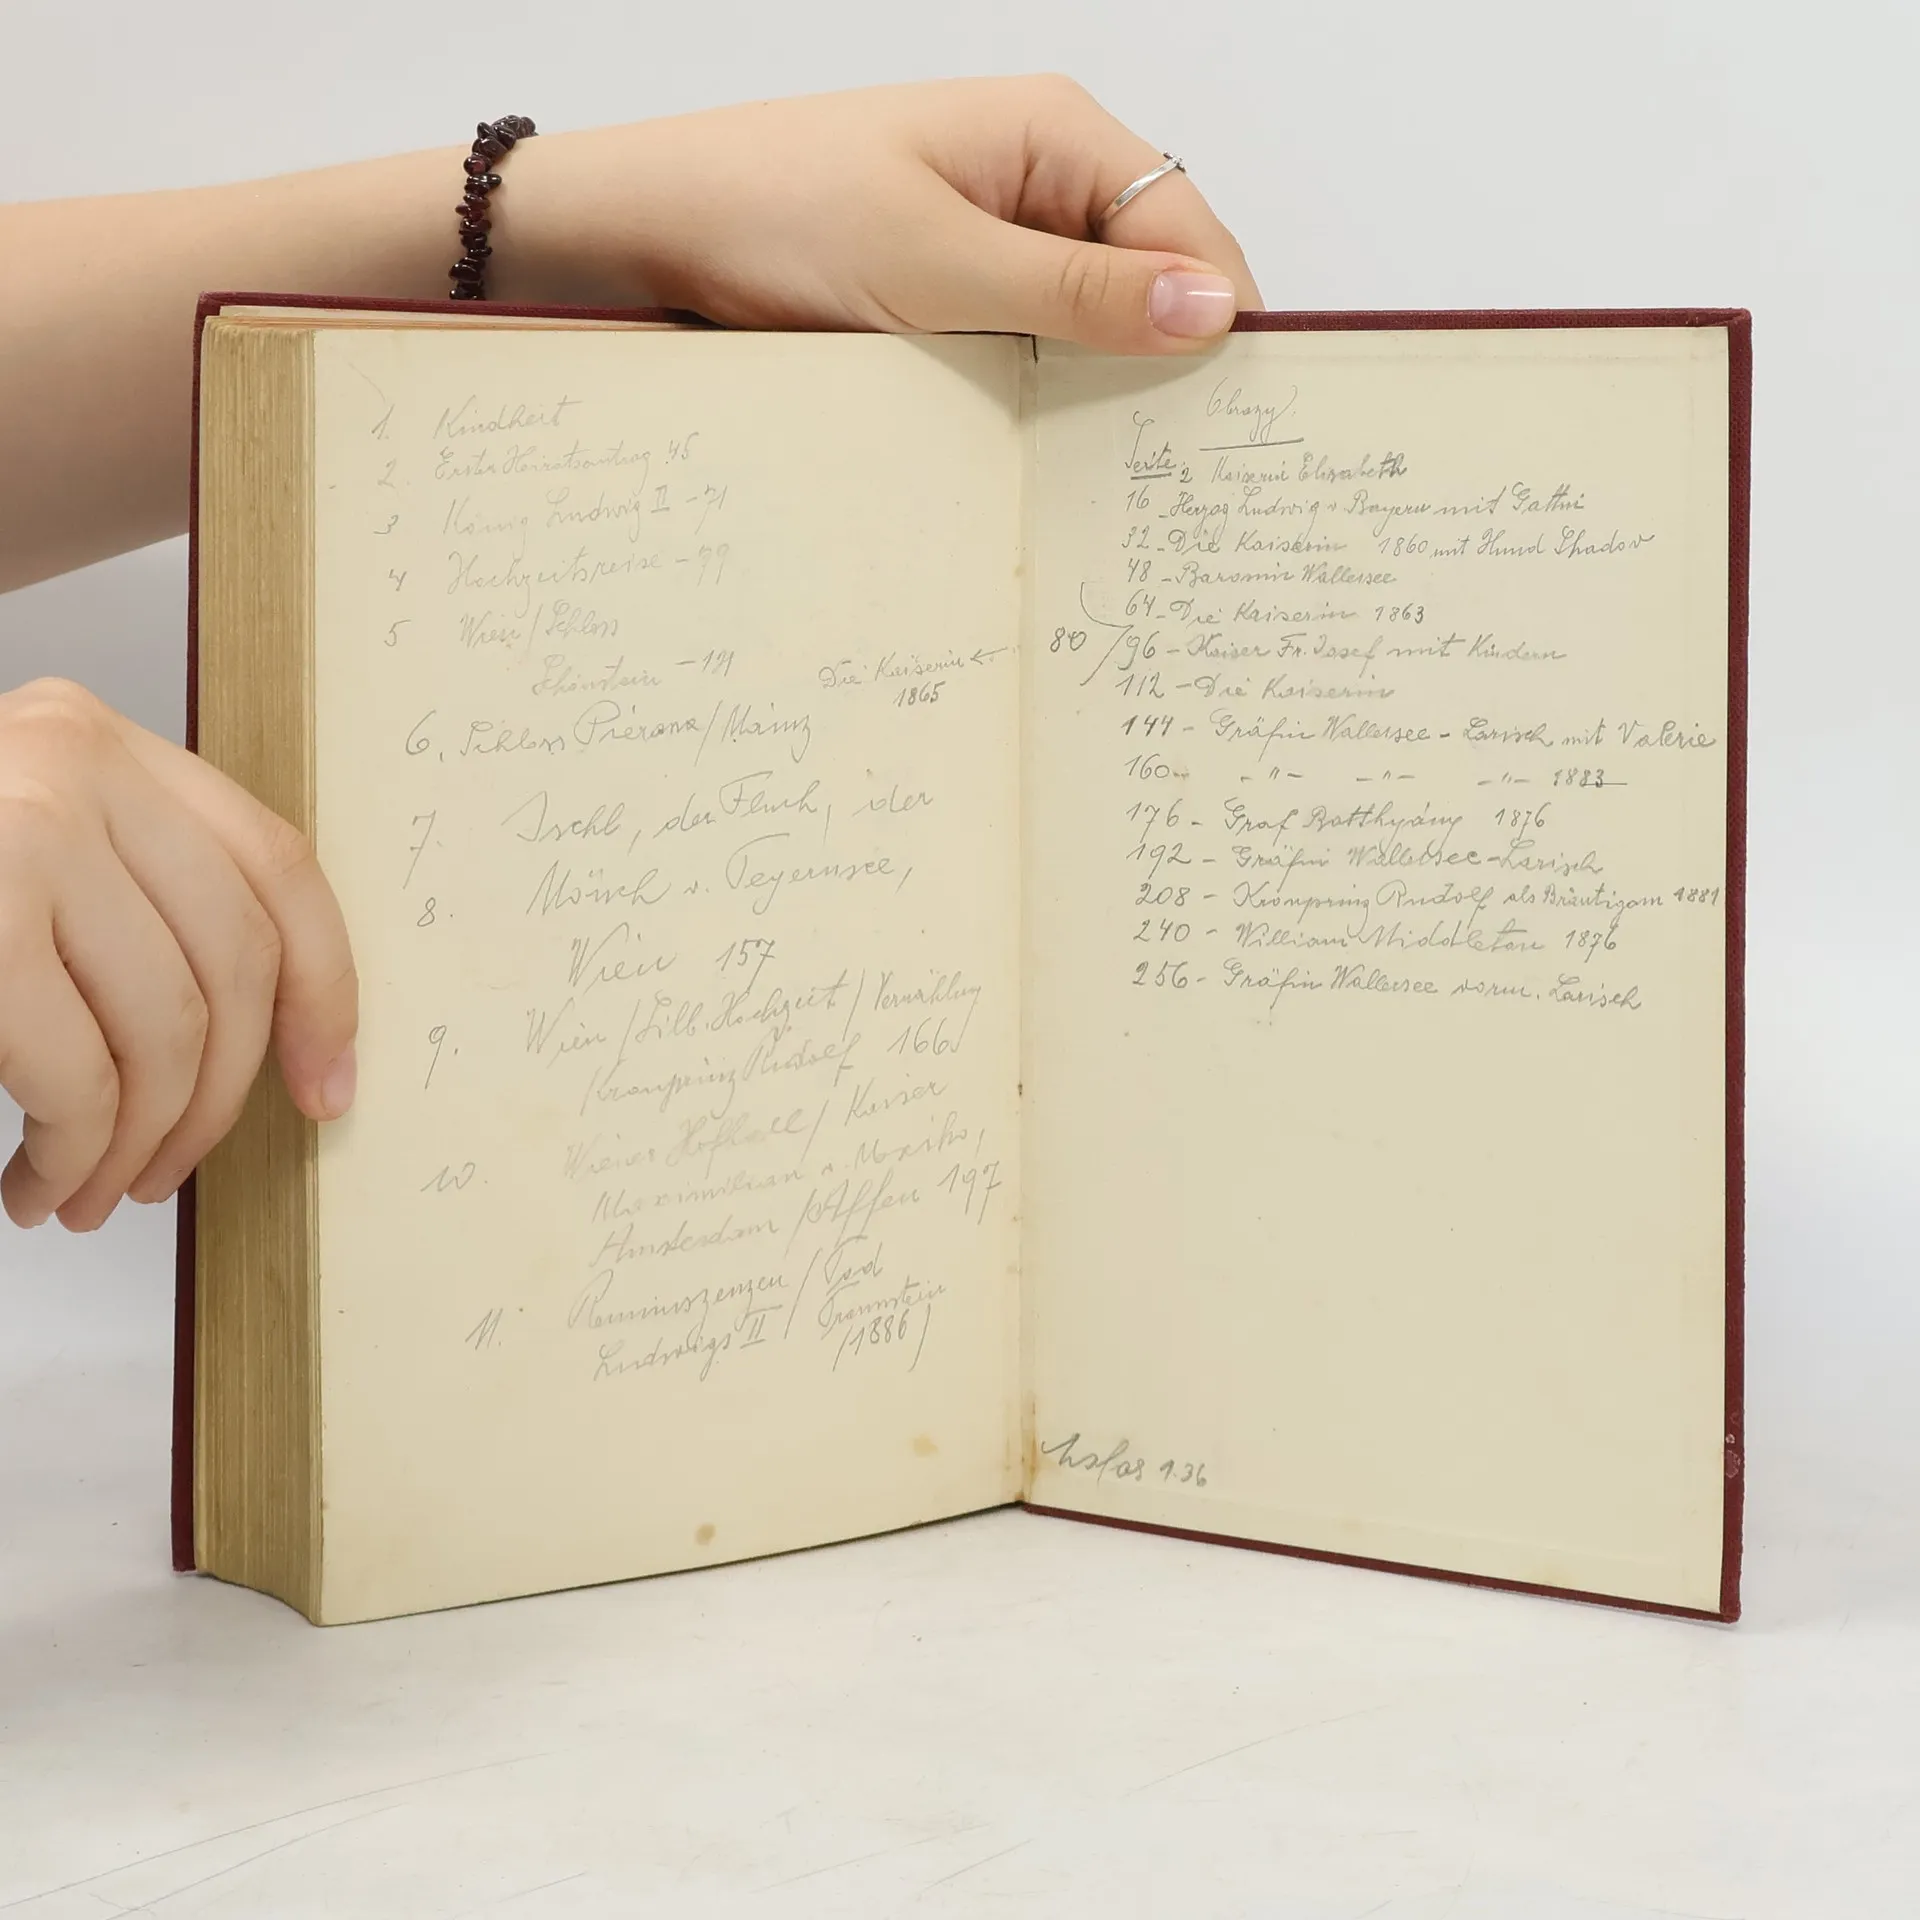 1. Kindheit
2. Erster Heiratsantrag 45
3 König Ludwig II - 71
4 Hochzeitsreise - 79
5 Wien / Schloss
- 121
Die Kaiserin ←
1865
6. Schloss / Mainz
7. Ischl, der Fluch, der
8. Mönch v. Tegernsee,
Wien 157
9. Wien / Silb. Hochzeit / Vermählung
Kronprinz Rudolf 166
10. Wiener Hofball / Kaiser
Maximilian v. Mexiko,
Amsterdam / Affen 197
11. Reminiszenzen / Tod
Ludwigs II / Traunstein
/1886/
Obrazy.
Seite: 2 Kaiserin Elisabeth
16 - Herzog Ludwig v Bayern mit Gattin
32 - Die Kaiserin 1860 mit Hund Shadov
48 - Baronin Wallersee
64 - Die Kaiserin 1863
80 / 96 - Kaiser Fr. Josef mit Kindern
112 - Die Kaiserin
144 - Gräfin Wallersee - Larisch mit Valerie
160 - -"- -"- -"- 1883
176 - Graf Batthyány 1876
192 - Gräfin Wallersee-Larisch
208 - Kronprinz Rudolf als Bräutigam 1881
240 - William Middleton 1876
256 - Gräfin Wallersee vorm. Larisch
1.36